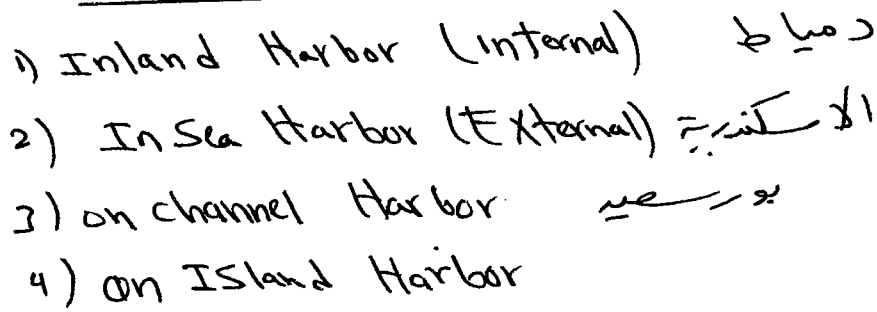 1) Inland Harbor (internal) دمياط
2) In Sea Harbor (External) الاسكندرية
3) on channel Harbor بورسعيد
4) on Island Harbor